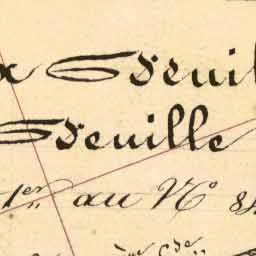 x Feuil
Feuille
1er au No 8